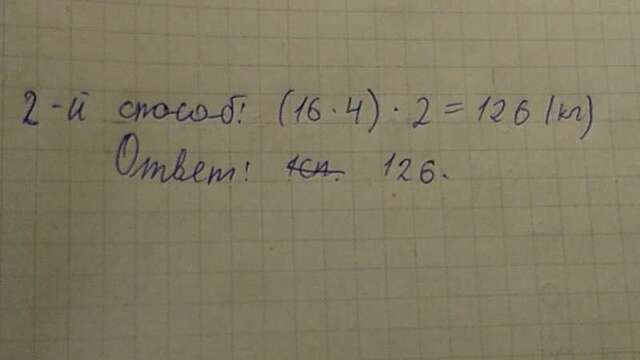 2-й способ: (16 · 4) · 2 = 126 (кг)
Ответ: 126.